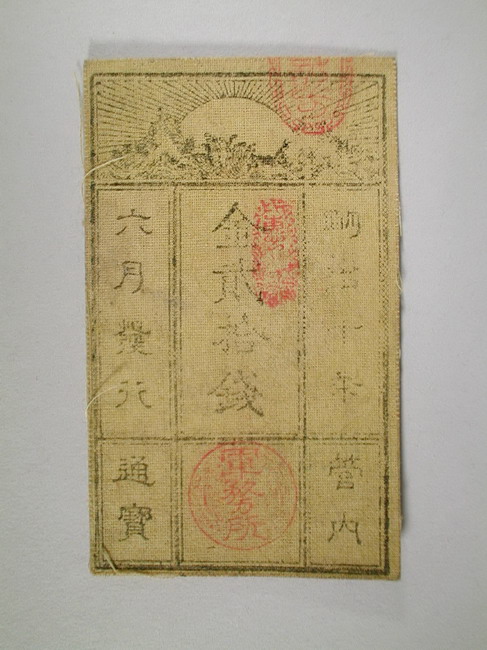 明治十年
金貳拾錢
六月發行
管内
通寶
軍務所